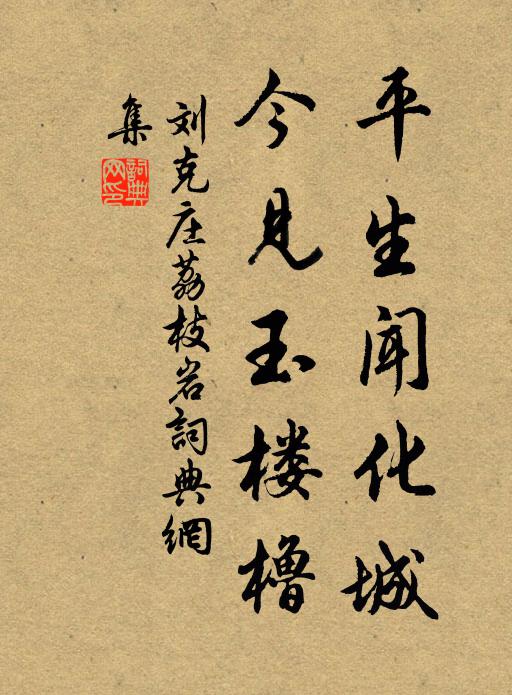 平生闻化城
今见玉楼橹
刘克庄荔枝岩詞典網
集
詞典网印